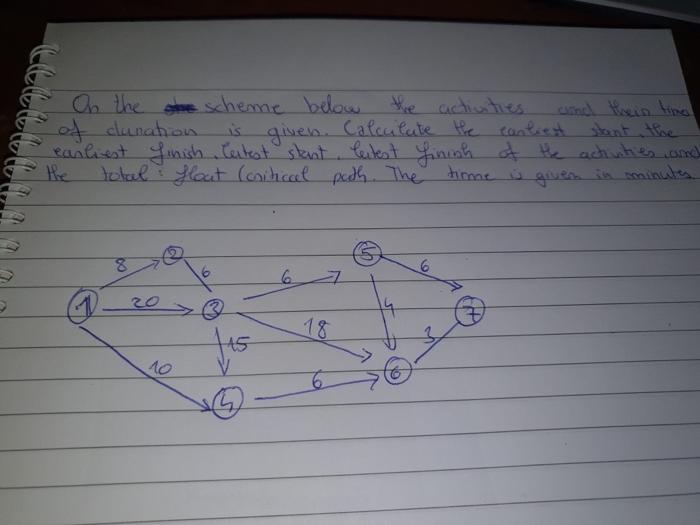 On the scheme below the activities and their time
of duration is given. Calculate the earliest start, the
earliest finish, latest start, latest finish of the activities, and
the total: float (critical path. The time is given in minutes
2 5
8 6 6 6
1 20 3 4 7
15 18 3
10 6
6
4